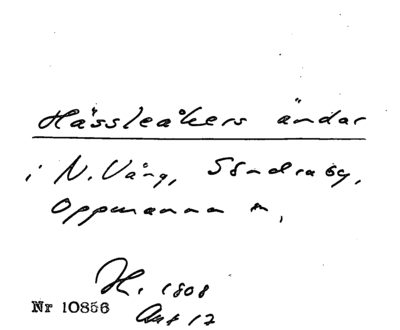 Hässleåkers ändar
i N. Vång, Söndraby,
Oppmanna sn,
H. 1808
Akt 12
Nr 10856